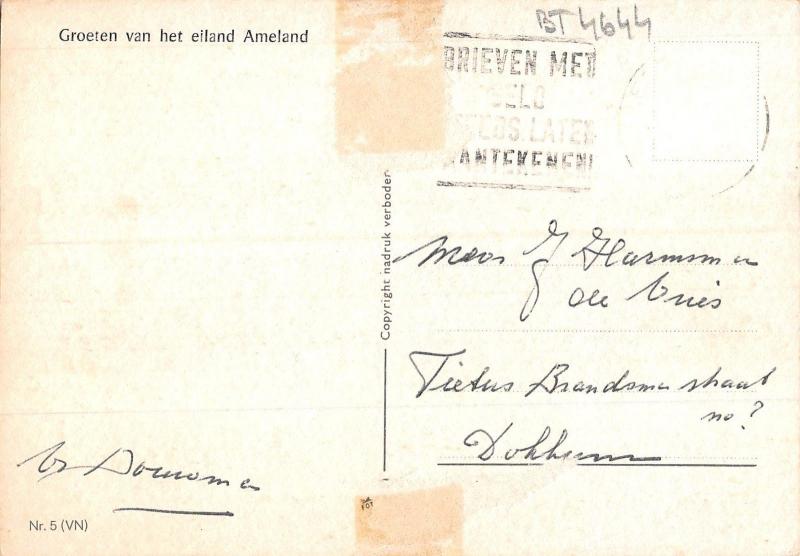 Groeten van het eiland Ameland
BT 4644
BRIEVEN MET
GELD
STEEDS LATEN
AANTEKENEN!
Copyright nadruk verboden
Mevr J Harmsma
de Vries
Tietus Brandsma straat
no?
Dokkum
Nr. 5 (VN)